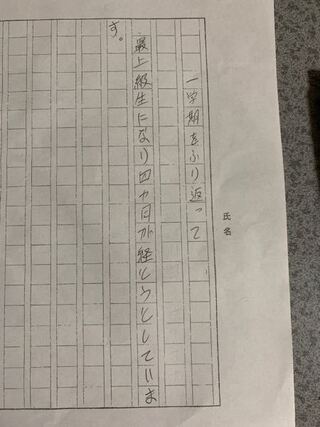 氏名
一学期をふり返って
最上級生になり四カ月が経とうとしていま
す。